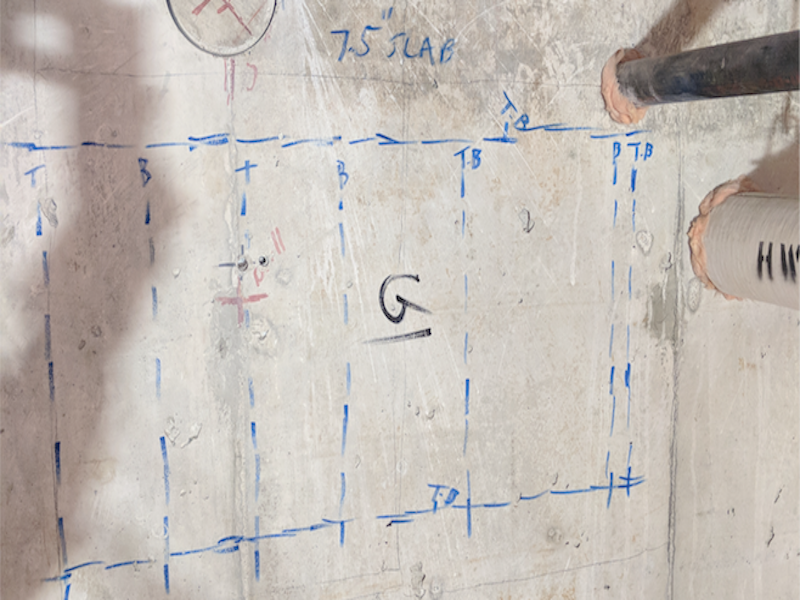 7.5" SLAB
T.B
T B T B T.B B T.B
G
HW
T.B